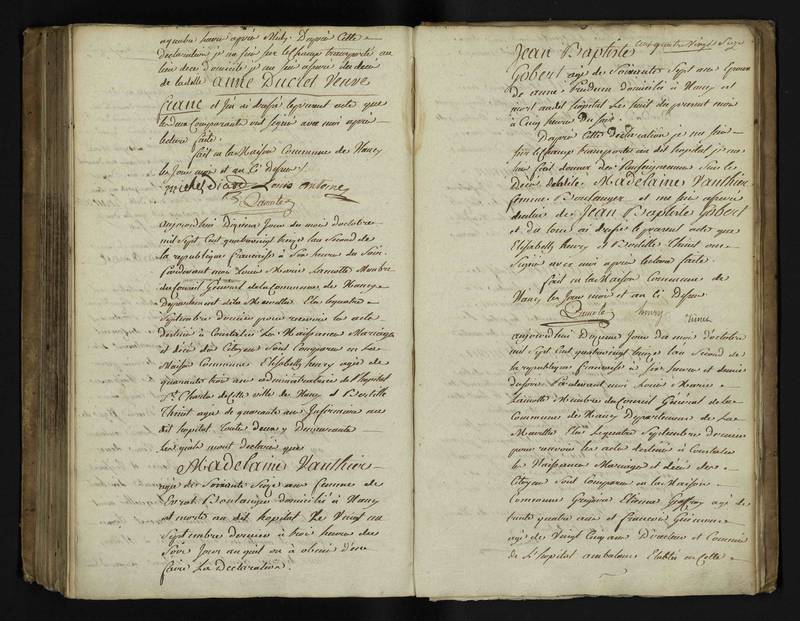 quatre heures après Midy. Daprès Cette
déclaration je me suis sur le champ transporté au
lieu de ce domicile je me suis assuré du décès
de ladite anne Duclot Veuve
et j'ai dressé le present acte que
les deux Comparants ont signé avec moi après
lecture faite.
fait en la Maison Commune de Nancy
les Jour mois et an Ci dessus
Louis antoine
Lamotte
aujourdhui Dixieme Jour du mois d'octobre
mil Sept Cent quatrevingt treize lan Second de
la republique francaise à Six heure du Soir.
Pardevant moi Louis Marie Lamotte Membre
du Conseil Général de la Commune de Nancy
Departement de la Meurthe Elu le quatre
Septembre dernier pour recevoir les acte
destinés à Constater La Naissance Mariages
et décès des Citoyens Sont Comparus en La
Maison Commune Elisabethe henry agée de
quarante trois ans administratrice de l'hopital
St. Charles de Cette ville de Nancy et
Thiriet agée de quarante ans Infirmiere au
dit hopital toute deux y Demeurante
Lesquels mont declaré que
Madelaine Vauthier
agée de Soixante Seize ans femme de
Boulanger domicilié à Nancy
et morte au dit hopital Le Vingt un
Septembre dernier à trois heures du
Soir Jour auquel on a obmis d'en
faire La Declaration.
Cent quatre Vingt Seize
Jean Baptiste
Gobert agé de Soixante Sept ans Epoux
de anne Prudun Domicilié à Nancy et
mort audit hopital Le huit du present mois
à Cinq heures Du Soir.
Daprès Cette Déclaration je me suis
sur le champ transporté au dit hopital je me
suis fait donner des Renseignemens Sur le
Décès de ladite Madelaine Vauthier
femme Boulanger et me suis assuré
de celui de Jean Baptiste Gobert
et du tout ai dressé le present acte que
Elisabeth henry & Thiriet ont
Signé avec moi après lecture faite.
fait en la Maison Commune de
Nancy les Jour mois et an Ci dessus
Lamotte henry
aujourdhui Dixieme Jour du mois d'octobre
mil Sept Cent quatrevingt treize lan Second de
la republique francaise à Six heures et demie
du soir Pardevant moi Louis Marie
Lamotte Membre du Conseil Général de la
Commune de Nancy Departement de La
Meurthe Elu Le quatre Septembre dernier
pour recevoir les acte destinés à Constater
les Naissances Mariages et décès des
Citoyens Sont Comparus en la Maison
Commune Etienne Geoffroy agé de
trente quatre ans et francois
agé de Vingt Cinq ans Directeur et Commis
de l'hopital ambulant Etablie en Cette